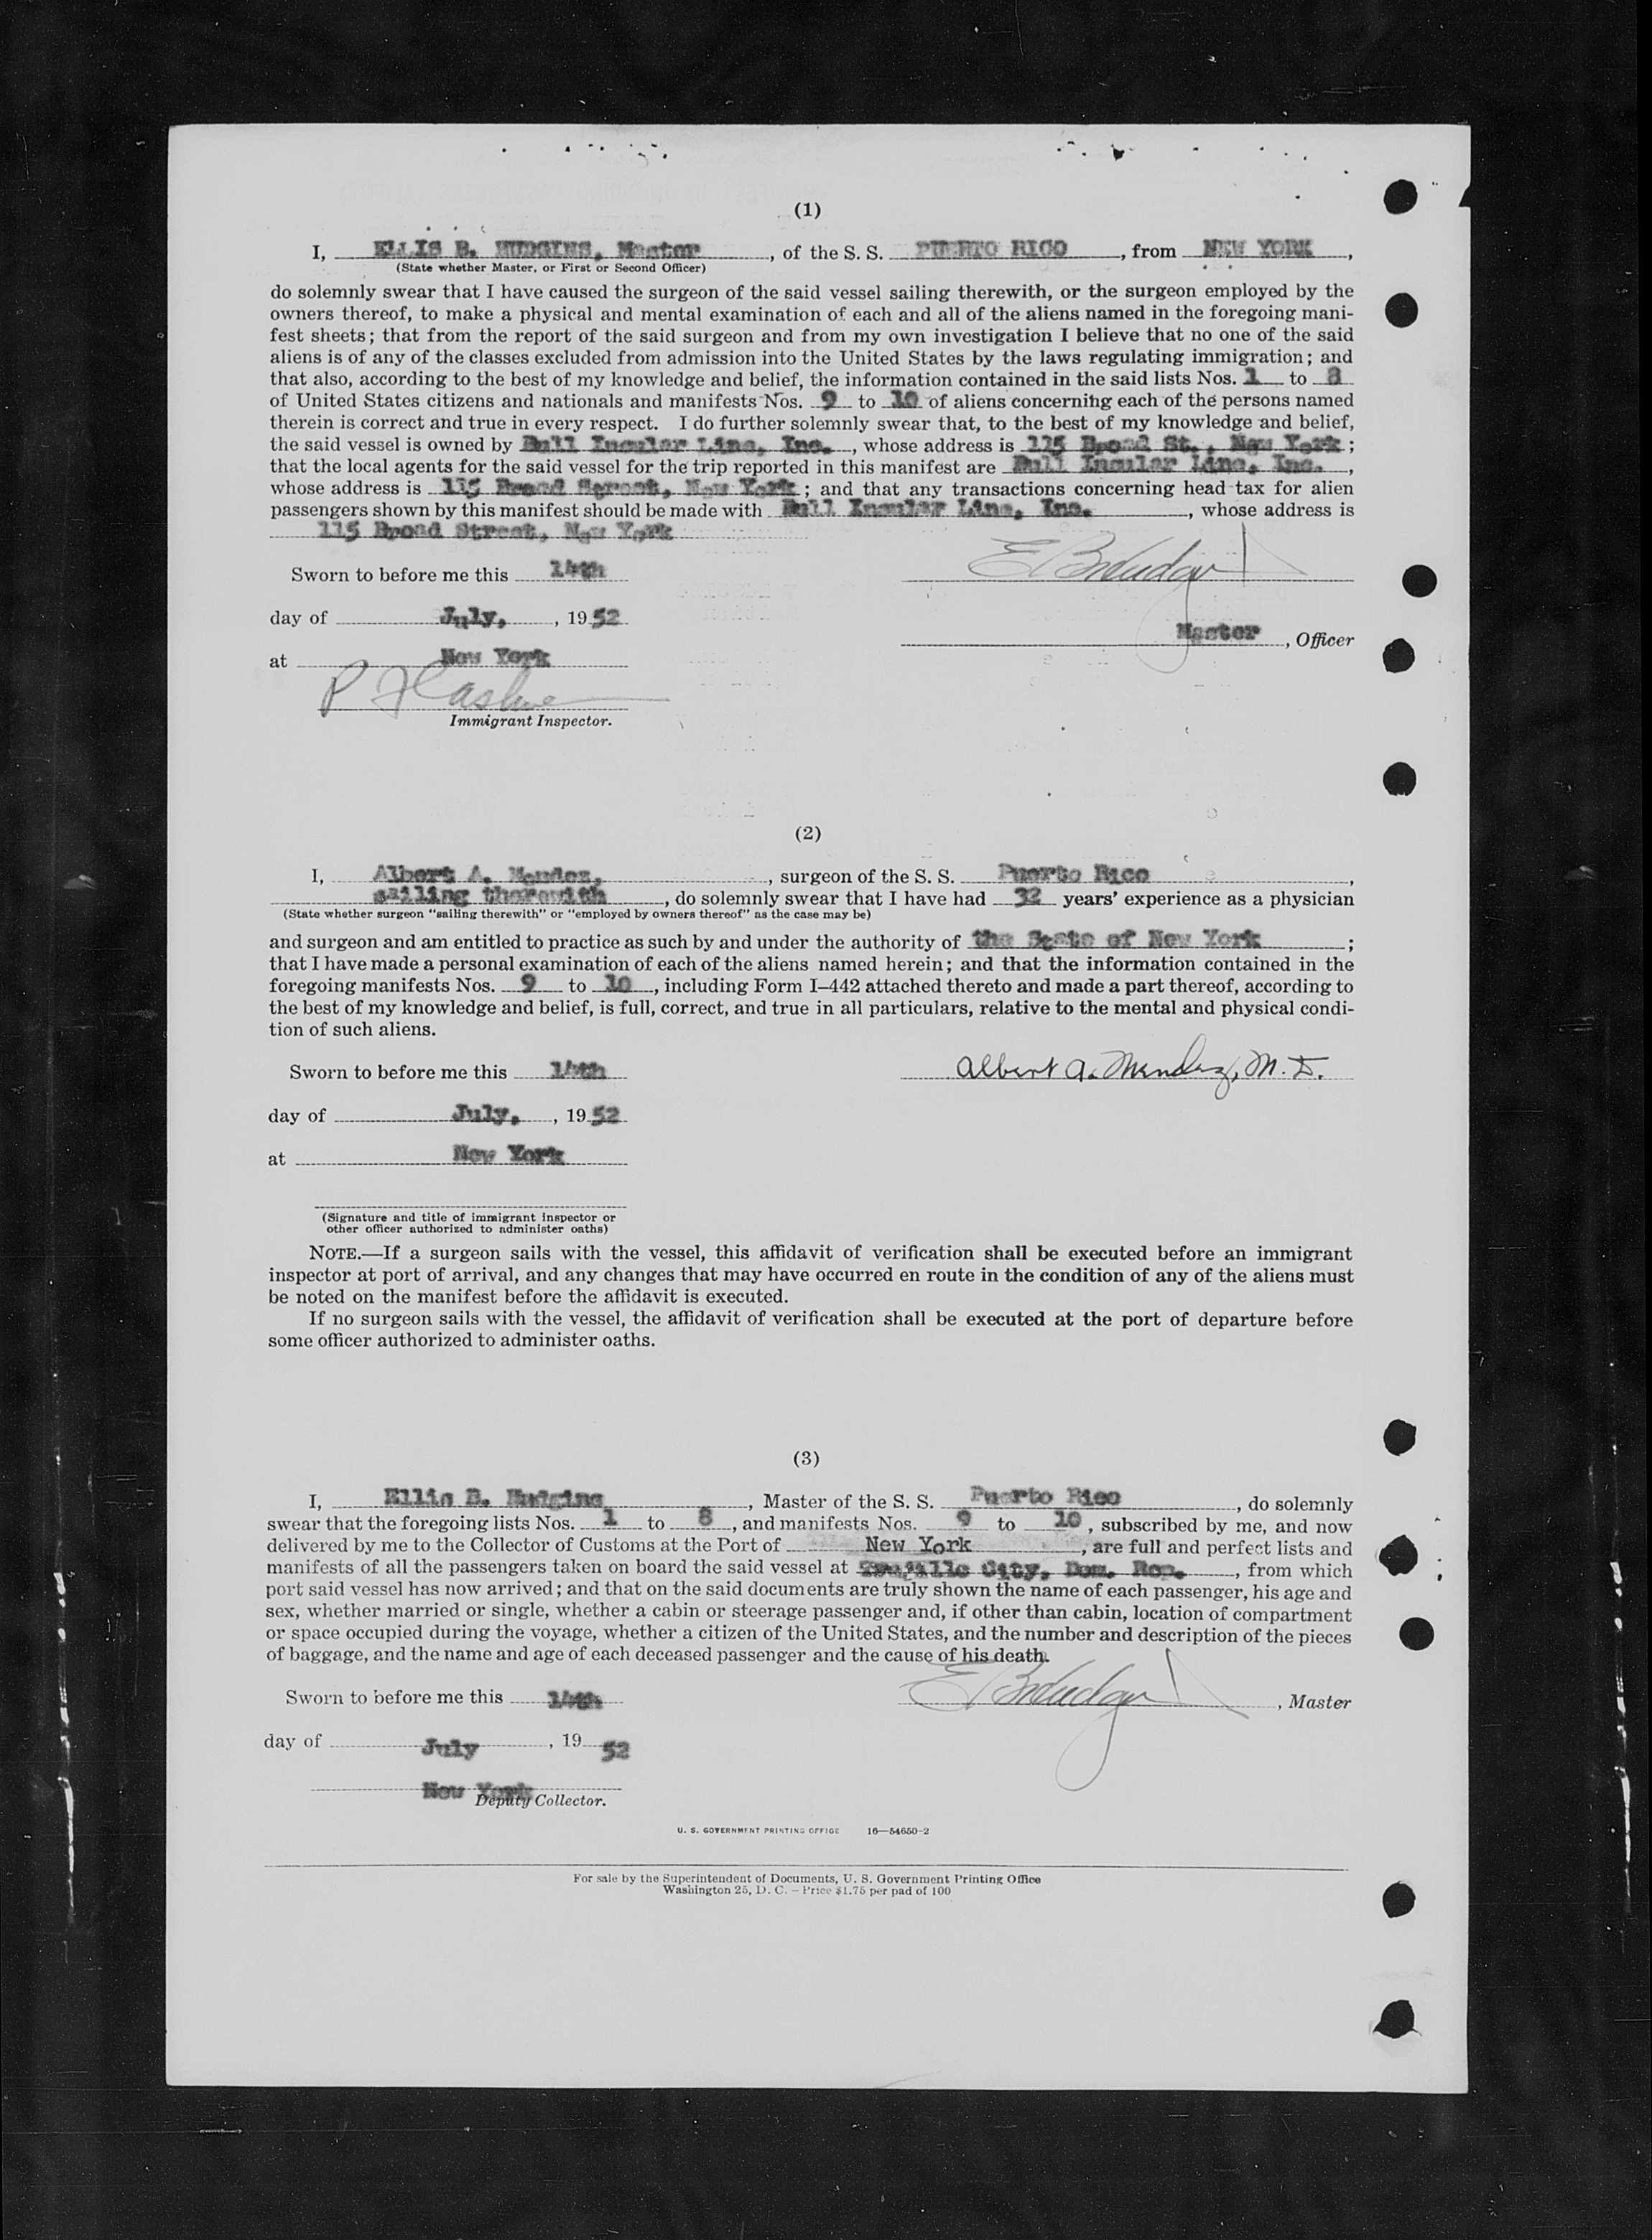 (1)
I, ELLIS B. HUDGINS, Master, of the S. S. PUERTO RICO, from NEW YORK,
(State whether Master, or First or Second Officer)
do solemnly swear that I have caused the surgeon of the said vessel sailing therewith, or the surgeon employed by the
owners thereof, to make a physical and mental examination of each and all of the aliens named in the foregoing mani-
fest sheets; that from the report of the said surgeon and from my own investigation I believe that no one of the said
aliens is of any of the classes excluded from admission into the United States by the laws regulating immigration; and
that also, according to the best of my knowledge and belief, the information contained in the said lists Nos. 1 to 8
of United States citizens and nationals and manifests Nos. 9 to 10 of aliens concerning each of the persons named
therein is correct and true in every respect. I do further solemnly swear that, to the best of my knowledge and belief,
the said vessel is owned by Bull Insular Line, Inc., whose address is 115 Broad St., New York;
that the local agents for the said vessel for the trip reported in this manifest are Bull Insular Line, Inc.,
whose address is 115 Broad Street, New York; and that any transactions concerning head tax for alien
passengers shown by this manifest should be made with Bull Insular Line, Inc., whose address is
115 Broad Street, New York
Sworn to before me this 14th
day of July, , 1952
Master, Officer
at New York
Immigrant Inspector.
(2)
I, Albert A. Mendez, , surgeon of the S. S. Puerto Rico,
sailing therewith, do solemnly swear that I have had 32 years' experience as a physician
(State whether surgeon "sailing therewith" or "employed by owners thereof" as the case may be)
and surgeon and am entitled to practice as such by and under the authority of the State of New York;
that I have made a personal examination of each of the aliens named herein; and that the information contained in the
foregoing manifests Nos. 9 to 10, including Form I–442 attached thereto and made a part thereof, according to
the best of my knowledge and belief, is full, correct, and true in all particulars, relative to the mental and physical condi-
tion of such aliens.
Sworn to before me this 14th
Albert A. Mendez, M. D.
day of July, , 1952
at New York
(Signature and title of immigrant inspector or
other officer authorized to administer oaths)
NOTE.—If a surgeon sails with the vessel, this affidavit of verification shall be executed before an immigrant
inspector at port of arrival, and any changes that may have occurred en route in the condition of any of the aliens must
be noted on the manifest before the affidavit is executed.
If no surgeon sails with the vessel, the affidavit of verification shall be executed at the port of departure before
some officer authorized to administer oaths.
(3)
I, Ellis B. Hudgins, Master of the S. S. Puerto Rico, do solemnly
swear that the foregoing lists Nos. 1 to 8, and manifests Nos. 9 to 10, subscribed by me, and now
delivered by me to the Collector of Customs at the Port of New York, are full and perfect lists and
manifests of all the passengers taken on board the said vessel at Trujillo City, Dom. Rep., from which
port said vessel has now arrived; and that on the said documents are truly shown the name of each passenger, his age and
sex, whether married or single, whether a cabin or steerage passenger and, if other than cabin, location of compartment
or space occupied during the voyage, whether a citizen of the United States, and the number and description of the pieces
of baggage, and the name and age of each deceased passenger and the cause of his death.
Sworn to before me this 14th
, Master
day of July, 19 52
New York
Deputy Collector.
U. S. GOVERNMENT PRINTING OFFICE 16—54650-2
For sale by the Superintendent of Documents, U. S. Government Printing Office
Washington 25, D. C. - Price $1.75 per pad of 100